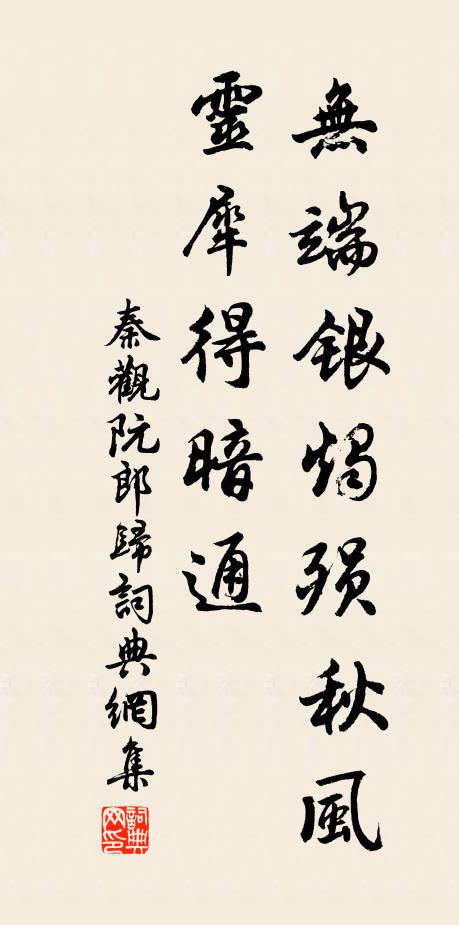 無端銀燭殞秋風
靈犀得暗通
秦觀阮郎歸詞典網集
詞典网印